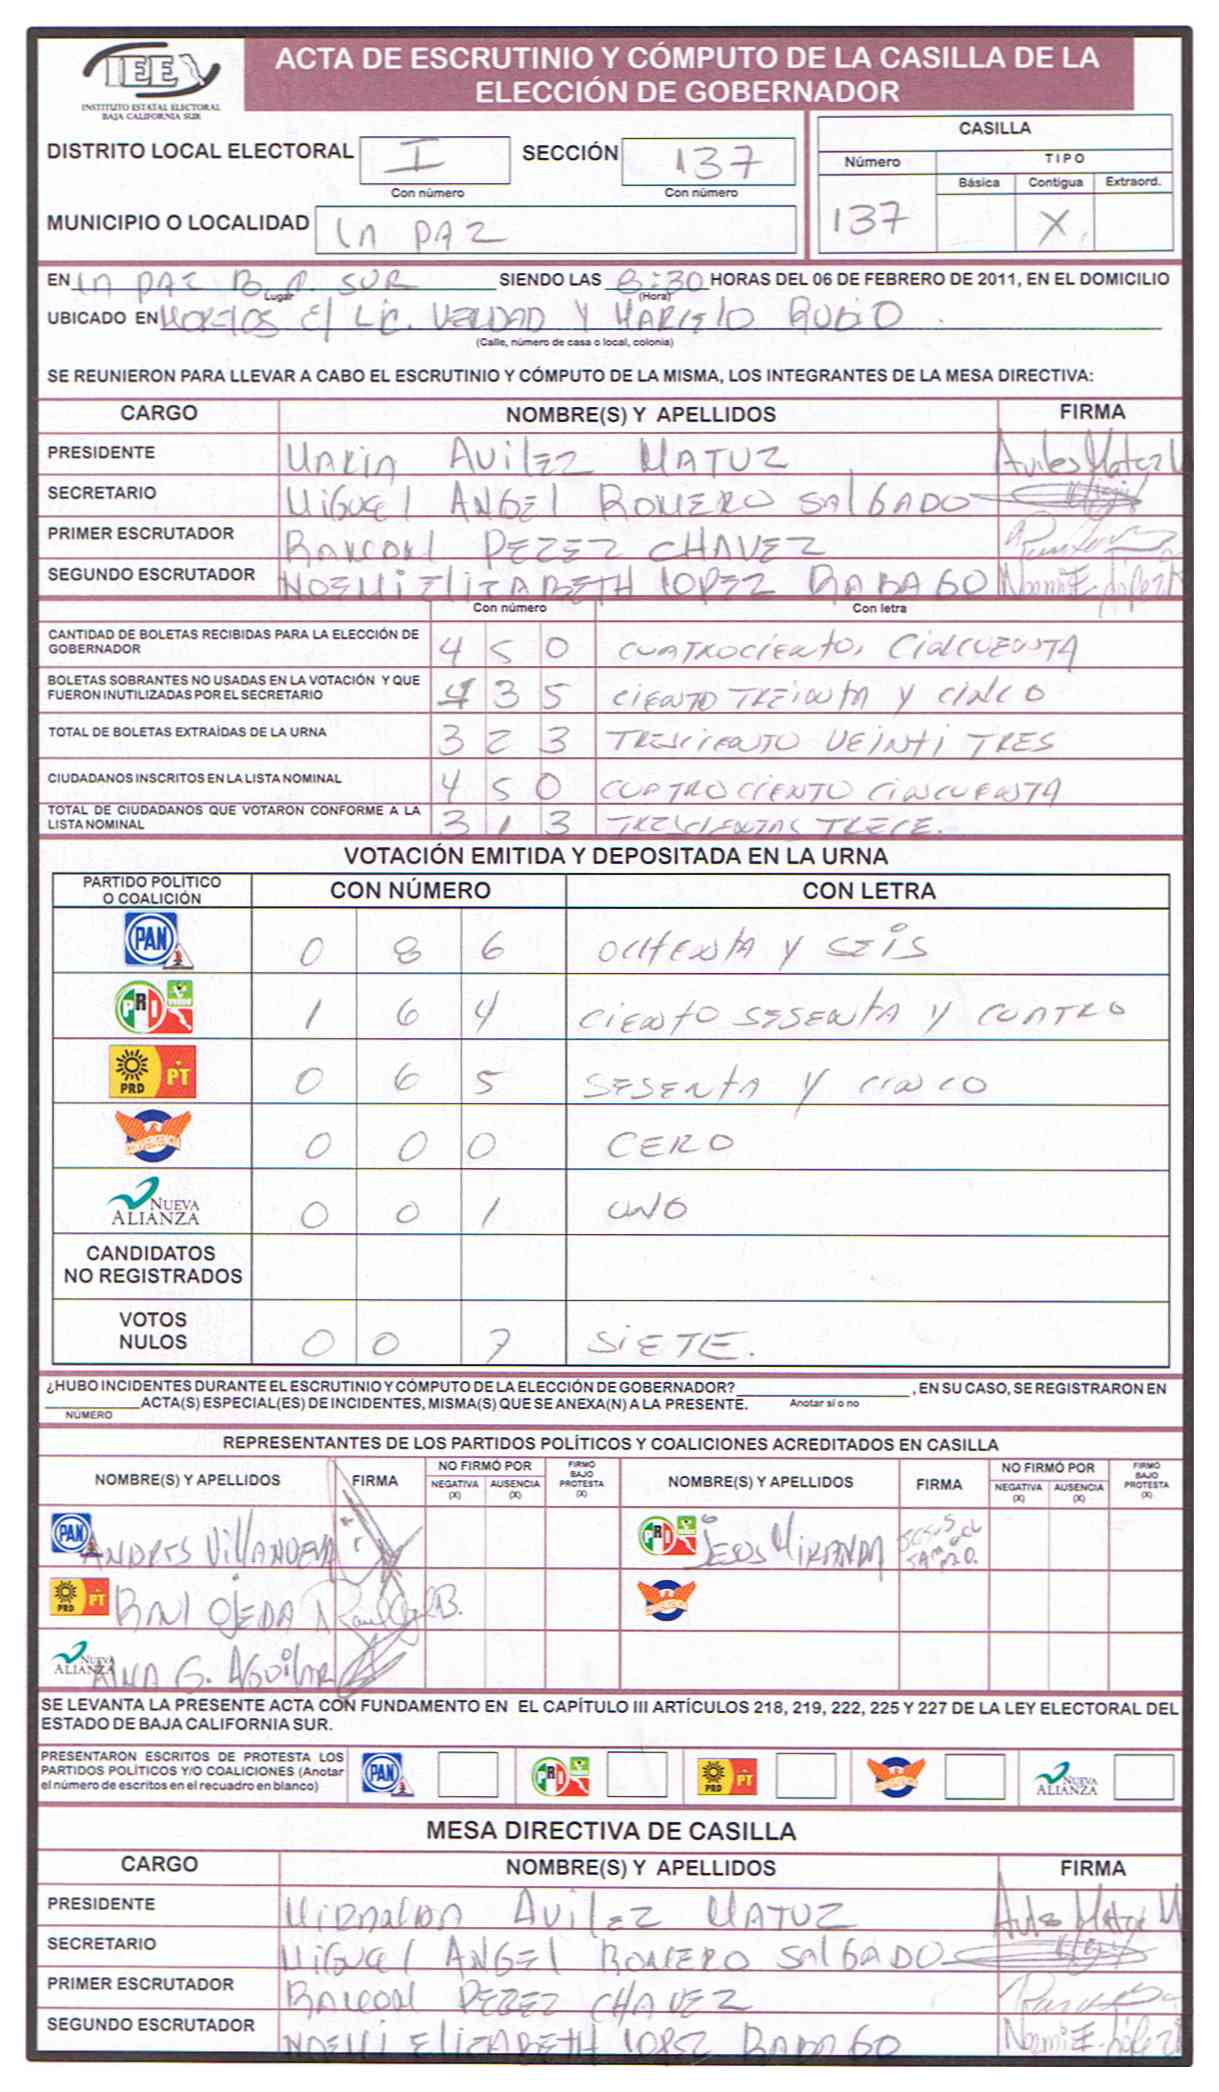 IEE
INSTITUTO ESTATAL ELECTORAL
BAJA CALIFORNIA SUR
ACTA DE ESCRUTINIO Y CÓMPUTO DE LA CASILLA DE LA
ELECCIÓN DE GOBERNADOR
DISTRITO LOCAL ELECTORAL I SECCIÓN 137
Con número Con número
MUNICIPIO O LOCALIDAD LA PAZ
CASILLA
Número TIPO
Básica Contigua Extraord.
137 X
EN LA PAZ B.C. SUR SIENDO LAS 8:30 HORAS DEL 06 DE FEBRERO DE 2011, EN EL DOMICILIO
Lugar (Hora)
UBICADO EN MORELOS E/ LIC. VERDAD Y MARCELO RUBIO
(Calle, número de casa o local, colonia)
SE REUNIERON PARA LLEVAR A CABO EL ESCRUTINIO Y CÓMPUTO DE LA MISMA, LOS INTEGRANTES DE LA MESA DIRECTIVA:
CARGO NOMBRE(S) Y APELLIDOS FIRMA
PRESIDENTE AVILEZ MATUZ
SECRETARIO MIGUEL ANGEL ROMERO SALGADO
PRIMER ESCRUTADOR PEREZ CHAVEZ
SEGUNDO ESCRUTADOR NOEMI ELIZABETH LOPEZ RABAGO
Con número Con letra
CANTIDAD DE BOLETAS RECIBIDAS PARA LA ELECCIÓN DE
GOBERNADOR 4 5 0 CUATROCIENTO, CINCUENTA
BOLETAS SOBRANTES NO USADAS EN LA VOTACIÓN Y QUE
FUERON INUTILIZADAS POR EL SECRETARIO 1 3 5 CIENTO TREINTA Y CINCO
TOTAL DE BOLETAS EXTRAÍDAS DE LA URNA 3 2 3 TRESCIENTO VEINTI TRES
CIUDADANOS INSCRITOS EN LA LISTA NOMINAL 4 5 0 CUATROCIENTO CINCUENTA
TOTAL DE CIUDADANOS QUE VOTARON CONFORME A LA
LISTA NOMINAL 3 1 3 TRESCIENTAS TRECE.
VOTACIÓN EMITIDA Y DEPOSITADA EN LA URNA
PARTIDO POLÍTICO
O COALICIÓN CON NÚMERO CON LETRA
PAN 0 8 6 OCHENTA Y SEIS
PRI VERDE 1 6 4 CIENTO SESENTA Y CUATRO
PRD PT 0 6 5 SESENTA Y CINCO
CONVERGENCIA 0 0 0 CERO
NUEVA ALIANZA 0 0 1 UNO
CANDIDATOS
NO REGISTRADOS
VOTOS
NULOS 0 0 7 SIETE.
¿HUBO INCIDENTES DURANTE EL ESCRUTINIO Y CÓMPUTO DE LA ELECCIÓN DE GOBERNADOR? , EN SU CASO, SE REGISTRARON EN
ACTA(S) ESPECIAL(ES) DE INCIDENTES, MISMA(S) QUE SE ANEXA(N) A LA PRESENTE. Anotar sí o no
NÚMERO
REPRESENTANTES DE LOS PARTIDOS POLÍTICOS Y COALICIONES ACREDITADOS EN CASILLA
NOMBRE(S) Y APELLIDOS FIRMA NO FIRMÓ POR NEGATIVA (X) AUSENCIA (X) FIRMÓ BAJO PROTESTA (X) NOMBRE(S) Y APELLIDOS FIRMA NO FIRMÓ POR NEGATIVA (X) AUSENCIA (X) FIRMÓ BAJO PROTESTA (X)
PAN ANDRES VILLANUEVA PRI JESUS MIRANDA
PRD PT OJEDA CONVERGENCIA
NUEVA ALIANZA G. AGUILAR
SE LEVANTA LA PRESENTE ACTA CON FUNDAMENTO EN EL CAPÍTULO III ARTÍCULOS 218, 219, 222, 225 Y 227 DE LA LEY ELECTORAL DEL
ESTADO DE BAJA CALIFORNIA SUR.
PRESENTARON ESCRITOS DE PROTESTA LOS
PARTIDOS POLÍTICOS Y/O COALICIONES (Anotar
el número de escritos en el recuadro en blanco) PAN PRI PRD PT NUEVA ALIANZA
MESA DIRECTIVA DE CASILLA
CARGO NOMBRE(S) Y APELLIDOS FIRMA
PRESIDENTE AVILEZ MATUZ
SECRETARIO MIGUEL ANGEL ROMERO SALGADO
PRIMER ESCRUTADOR PEREZ CHAVEZ
SEGUNDO ESCRUTADOR NOEMI ELIZABETH LOPEZ RABAGO